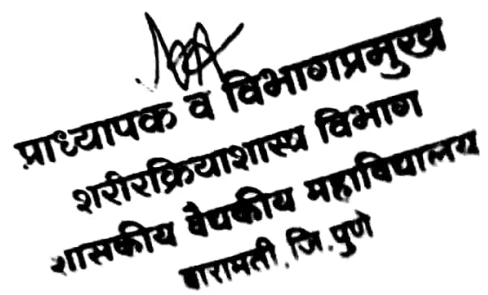 प्राध्यापक व विभागप्रमुख
शरीरक्रियाशास्त्र विभाग
शासकीय वैद्यकीय महाविद्यालय
बारामती, जि. पुणे